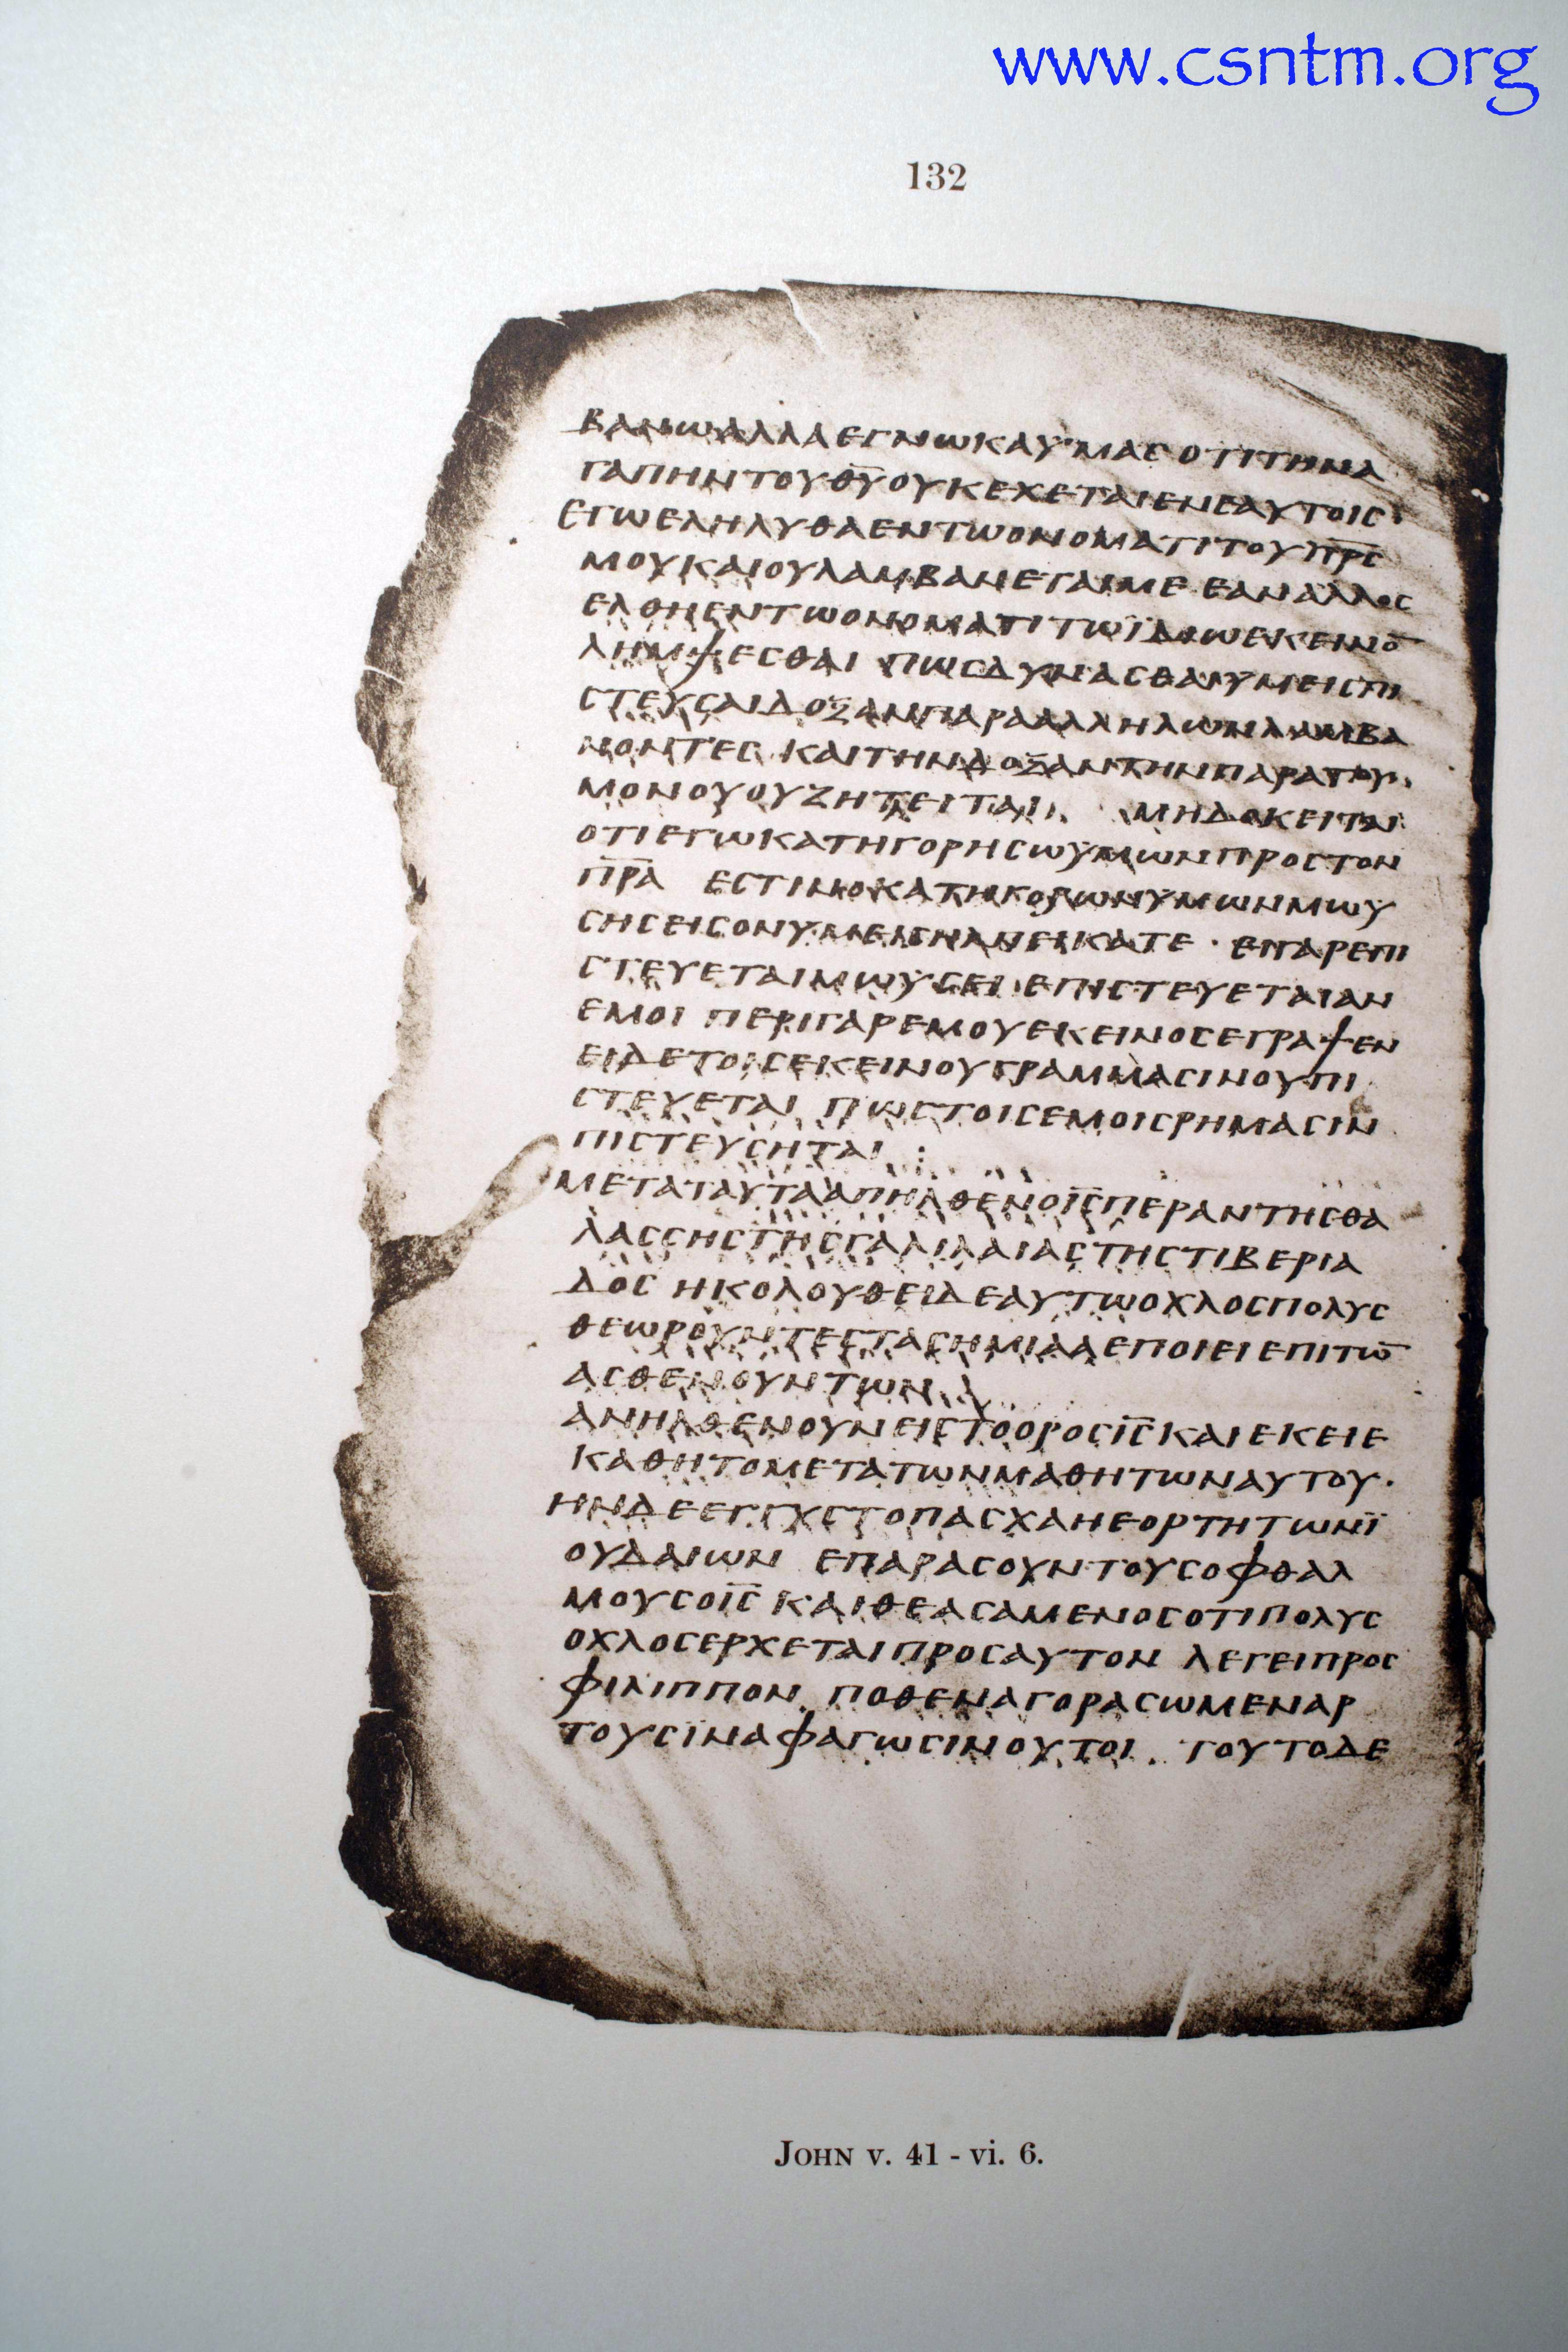 www.csntm.org
132
ΒΑΝΩΑΛΛΑΕΓΝΩΚΑΥΜΑΣΟΤΙΤΗΝΑ
ΓΑΠΗΝΤΟΥΘ̅Υ̅ΟΥΚΕΧΕΤΑΙΕΝΕΑΥΤΟΙΣ
ΕΓΩΕΛΗΛΥΘΑΕΝΤΩΟΝΟΜΑΤΙΤΟΥΠ̅Ρ̅Σ̅
ΜΟΥΚΑΙΟΥΛΑΜΒΑΝΕΤΑΙΜΕ ΕΑΝΑΛΛΟΣ
ΕΛΘΗΕΝΤΩΟΝΟΜΑΤΙΤΩΪΔΙΩΕΚΕΙΝΟ̅
ΛΗΜΨΕΣΘΑΙ ΠΩΣΔΥΝΑΣΘΑΙΥΜΕΙΣΠΙ
ΣΤΕΥΣΑΙΔΟΞΑΝΠΑΡΑΑΛΛΗΛΩΝΛΑΜΒΑ
ΝΟΝΤΕΣ ΚΑΙΤΗΝΔΟΞΑΝΤΗΝΠΑΡΑΤΟΥ
ΜΟΝΟΥΟΥΖΗΤΕΙΤΑΙ ΜΗΔΟΚΕΙΤΑΙ
ΟΤΙΕΓΩΚΑΤΗΓΟΡΗΣΩΥΜΩΝΠΡΟΣΤΟΝ
Π̅Ρ̅Α̅ ΕΣΤΙΝΟΚΑΤΗΓΟΡΩΝΥΜΩΝΜΩΥ
ΣΗΣΕΙΣΟΝΥΜΕΙΣΗΛΠΕΙΚΑΤΕ · ΕΙΓΑΡΕΠΙ
ΣΤΕΥΕΤΑΙΜΩΥΣΕΙ ΕΠΙΣΤΕΥΕΤΑΙΑΝ
ΕΜΟΙ ΠΕΡΙΓΑΡΕΜΟΥΕΚΕΙΝΟΣΕΓΡΑΨΕΝ
ΕΙΔΕΤΟΙΣΕΚΕΙΝΟΥΓΡΑΜΜΑΣΙΝΟΥΠΙ
ΣΤΕΥΕΤΑΙ ΠΩΣΤΟΙΣΕΜΟΙΣΡΗΜΑΣΙΝ
ΠΙΣΤΕΥΣΗΤΑΙ :
ΜΕΤΑΤΑΥΤΑΑΠΗΛΘΕΝΟΙ̅Σ̅ΠΕΡΑΝΤΗΣΘΑ
ΛΑΣΣΗΣΤΗΣΓΑΛΙΛΑΙΑΣΤΗΣΤΙΒΕΡΙΑ
ΔΟΣ ΗΚΟΛΟΥΘΕΙΔΕΑΥΤΩΟΧΛΟΣΠΟΛΥΣ
ΘΕΩΡΟΥΝΤΕΣΤΑΣΗΜΙΑΑΕΠΟΙΕΙΕΠΙΤΩ̅
ΑΣΘΕΝΟΥΝΤΩΝ
ΑΝΗΛΘΕΝΟΥΝΕΙΣΤΟΟΡΟΣΙ̅Σ̅ΚΑΙΕΚΕΙΕ
ΚΑΘΗΤΟΜΕΤΑΤΩΝΜΑΘΗΤΩΝΑΥΤΟΥ·
ΗΝΔΕΕΓΓΥΣΤΟΠΑΣΧΑΗΕΟΡΤΗΤΩΝΪ
ΟΥΔΑΙΩΝ ΕΠΑΡΑΣΟΥΝΤΟΥΣΟΦΘΑΛ
ΜΟΥΣΟΙ̅Σ̅ ΚΑΙΘΕΑΣΑΜΕΝΟΣΟΤΙΠΟΛΥΣ
ΟΧΛΟΣΕΡΧΕΤΑΙΠΡΟΣΑΥΤΟΝ ΛΕΓΕΙΠΡΟΣ
ΦΙΛΙΠΠΟΝ ΠΟΘΕΝΑΓΟΡΑΣΩΜΕΝΑΡ
ΤΟΥΣΙΝΑΦΑΓΩΣΙΝΟΥΤΟΙ ΤΟΥΤΟΔΕ
JOHN v. 41 - vi. 6.